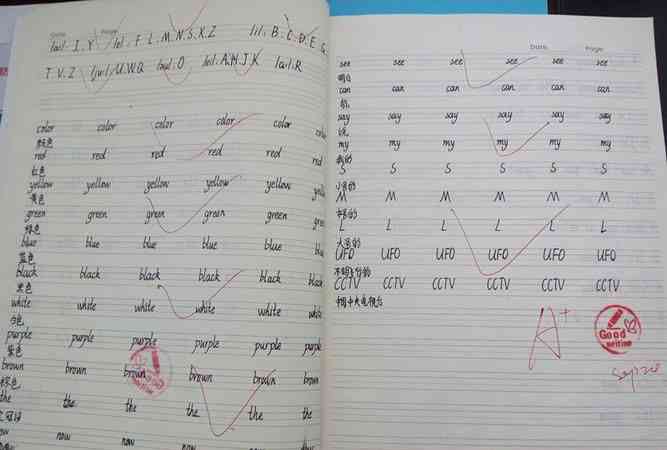 Date Page
/ai/: I.Y /e/: F L.M.N.S.X.Z /i:/: B.C.D.E.G
T.V.Z /ju:/: U.W.Q /əu/: O /ei/: A.H.J.K /a:/: R
color color color color color co
颜色
red red red red red
红色
yellow yellow yellow yellow yellow yell
黄色
green green green green green gr
绿色
blue blue blue blue blue b
蓝色
black black black black black bl
黑色
white white white white white wh
白色
purple purple purple purple purple purp
紫色
brown brown brown brown brown bro
棕色
the the the the the the
now now now now now
Date Page
see see see see see see
明白
can can can can can can
能
say say say say say say
说
my my my my my my
我的
S S S S S S
小号的
M M M M M M
中号的
L L L L L L
大号的
UFO UFO UFO UFO UFO UFO
不明飞行物
CCTV CCTV CCTV CCTV CCTV CCTV
中国中央电视台
A+
Good
writing